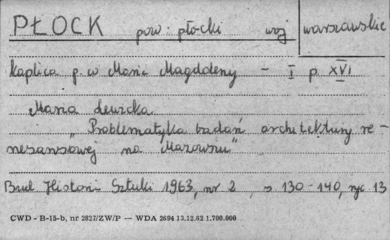 PŁOCK pow. płocki woj warszawskie
Kaplica p.w Marii Magdaleny – I p. XVI
Maria Lewicka
„Problematyka badań architektury re-
nesansowej na Mazowszu"
Biul Historii Sztuki 1963, nr 2, s 130-140, ryc 13
CWD - B-15-b, nr 2827/ZW/P — WDA 2694 13.12.62 1.700.000